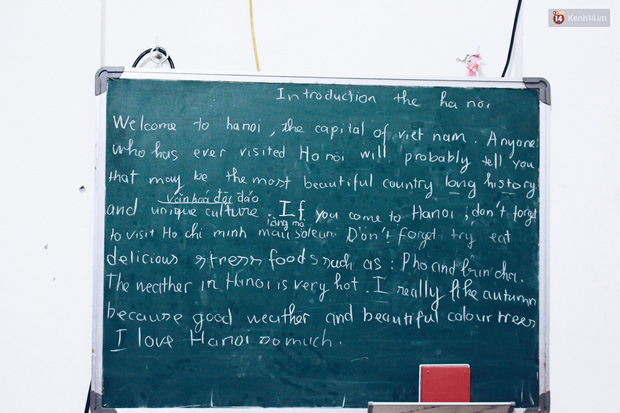 Kenh14.vn
Introduction the ha noi
Welcome to hanoi, the capital of viet nam. Anyone
who has ever visited Ha noi will probably tell you
that may be the most beautiful country long history
Văn hoá độc đáo
and unique culture. If you come to Hanoi, don't forget
lăng mộ
to visit Ho chi minh mau soleum. Don't forget try eat
delicious stress foods such as: Pho and bun cha.
The weather in Hanoi is very hot. I really like autumn
because good weather and beautiful colour trees
I love Hanoi so much.